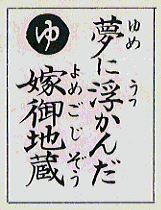 ゆ
夢に浮かんだ
ゆめ うっ
嫁御地蔵
よめごじぞう